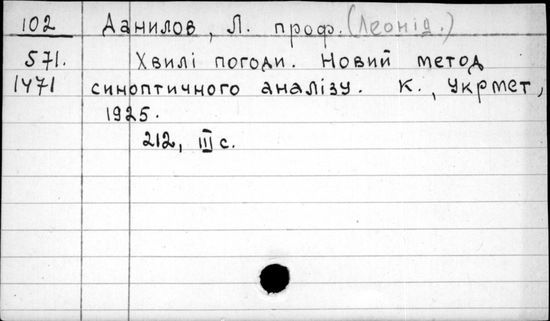 102 Данилов, Л. проф. (Леонід.)
571. Хвилі погоди. Новий метод
1471 синоптичного аналізу. К., Укрмет,
1925.
212, III с.